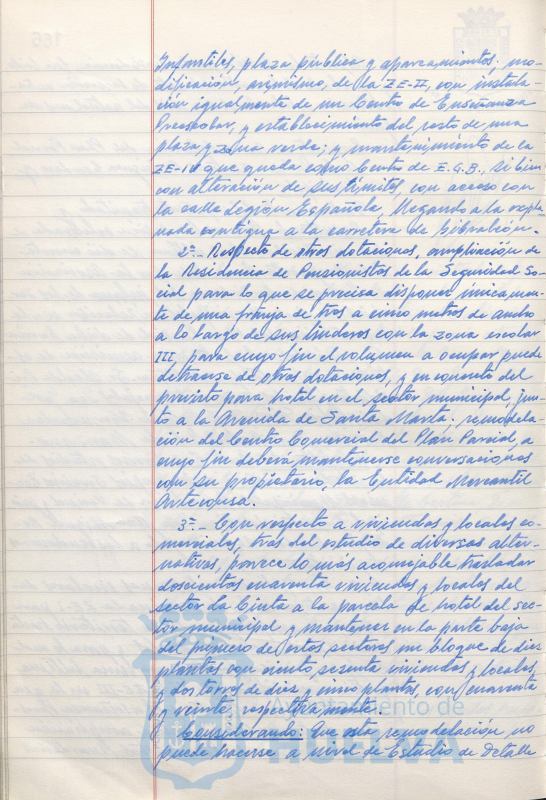 Infantiles, plaza pública y aparcamientos; mo-
dificación, asimismo, de la ZE-II, con instala-
ción igualmente de un Centro de Enseñanza
Preescolar, y establecimiento del resto de una
plaza y zona verde; y mantenimiento de la
ZE-10 que queda como Centro de E.G.B., si bien
con alteración de sus límites con acceso con
la calle Legión Española, llegando a la expla-
nada contigua a la carretera de Gibraleón.
2º.- Respecto de otros dotaciones, ampliación de
la Residencia de Pensionistas de la Seguridad So-
cial para lo que se precisa disponer únicamen-
te de una franja de tres a cinco metros de ancho
a lo largo de sus linderos con la zona escolar
III, para cuyo fin el volumen a ocupar puede
detraerse de otras dotaciones, y en concreto del
previsto para hotel en el sector municipal, jun-
to a la Avenida de Santa Marta; remodela-
ción del Centro Comercial del Plan Parcial, a
cuyo fin deberá mantenerse conversaciones
con su propietario, la Entidad Mercantil
3º.- Con respecto a viviendas y locales co-
merciales, tras del estudio de diversas alter-
nativas, parece lo más aconsejable trasladar
doscientos cuarenta viviendas y locales del
sector La Cinta a la parcela de hotel del sec-
tor municipal y mantener en la parte baja
del primero de estos sectores un bloque de diez
plantas con ciento sesenta viviendas y locales,
y dos torres de diez y cinco plantas, con cuarenta
y veinte respectivamente.
Considerando: Que esta remodelación no
puede hacerse a nivel de Estudio de Detalle
Ayuntamiento de
HUELVA